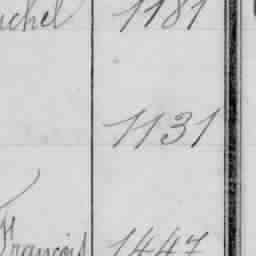 1181
1131
François 1447